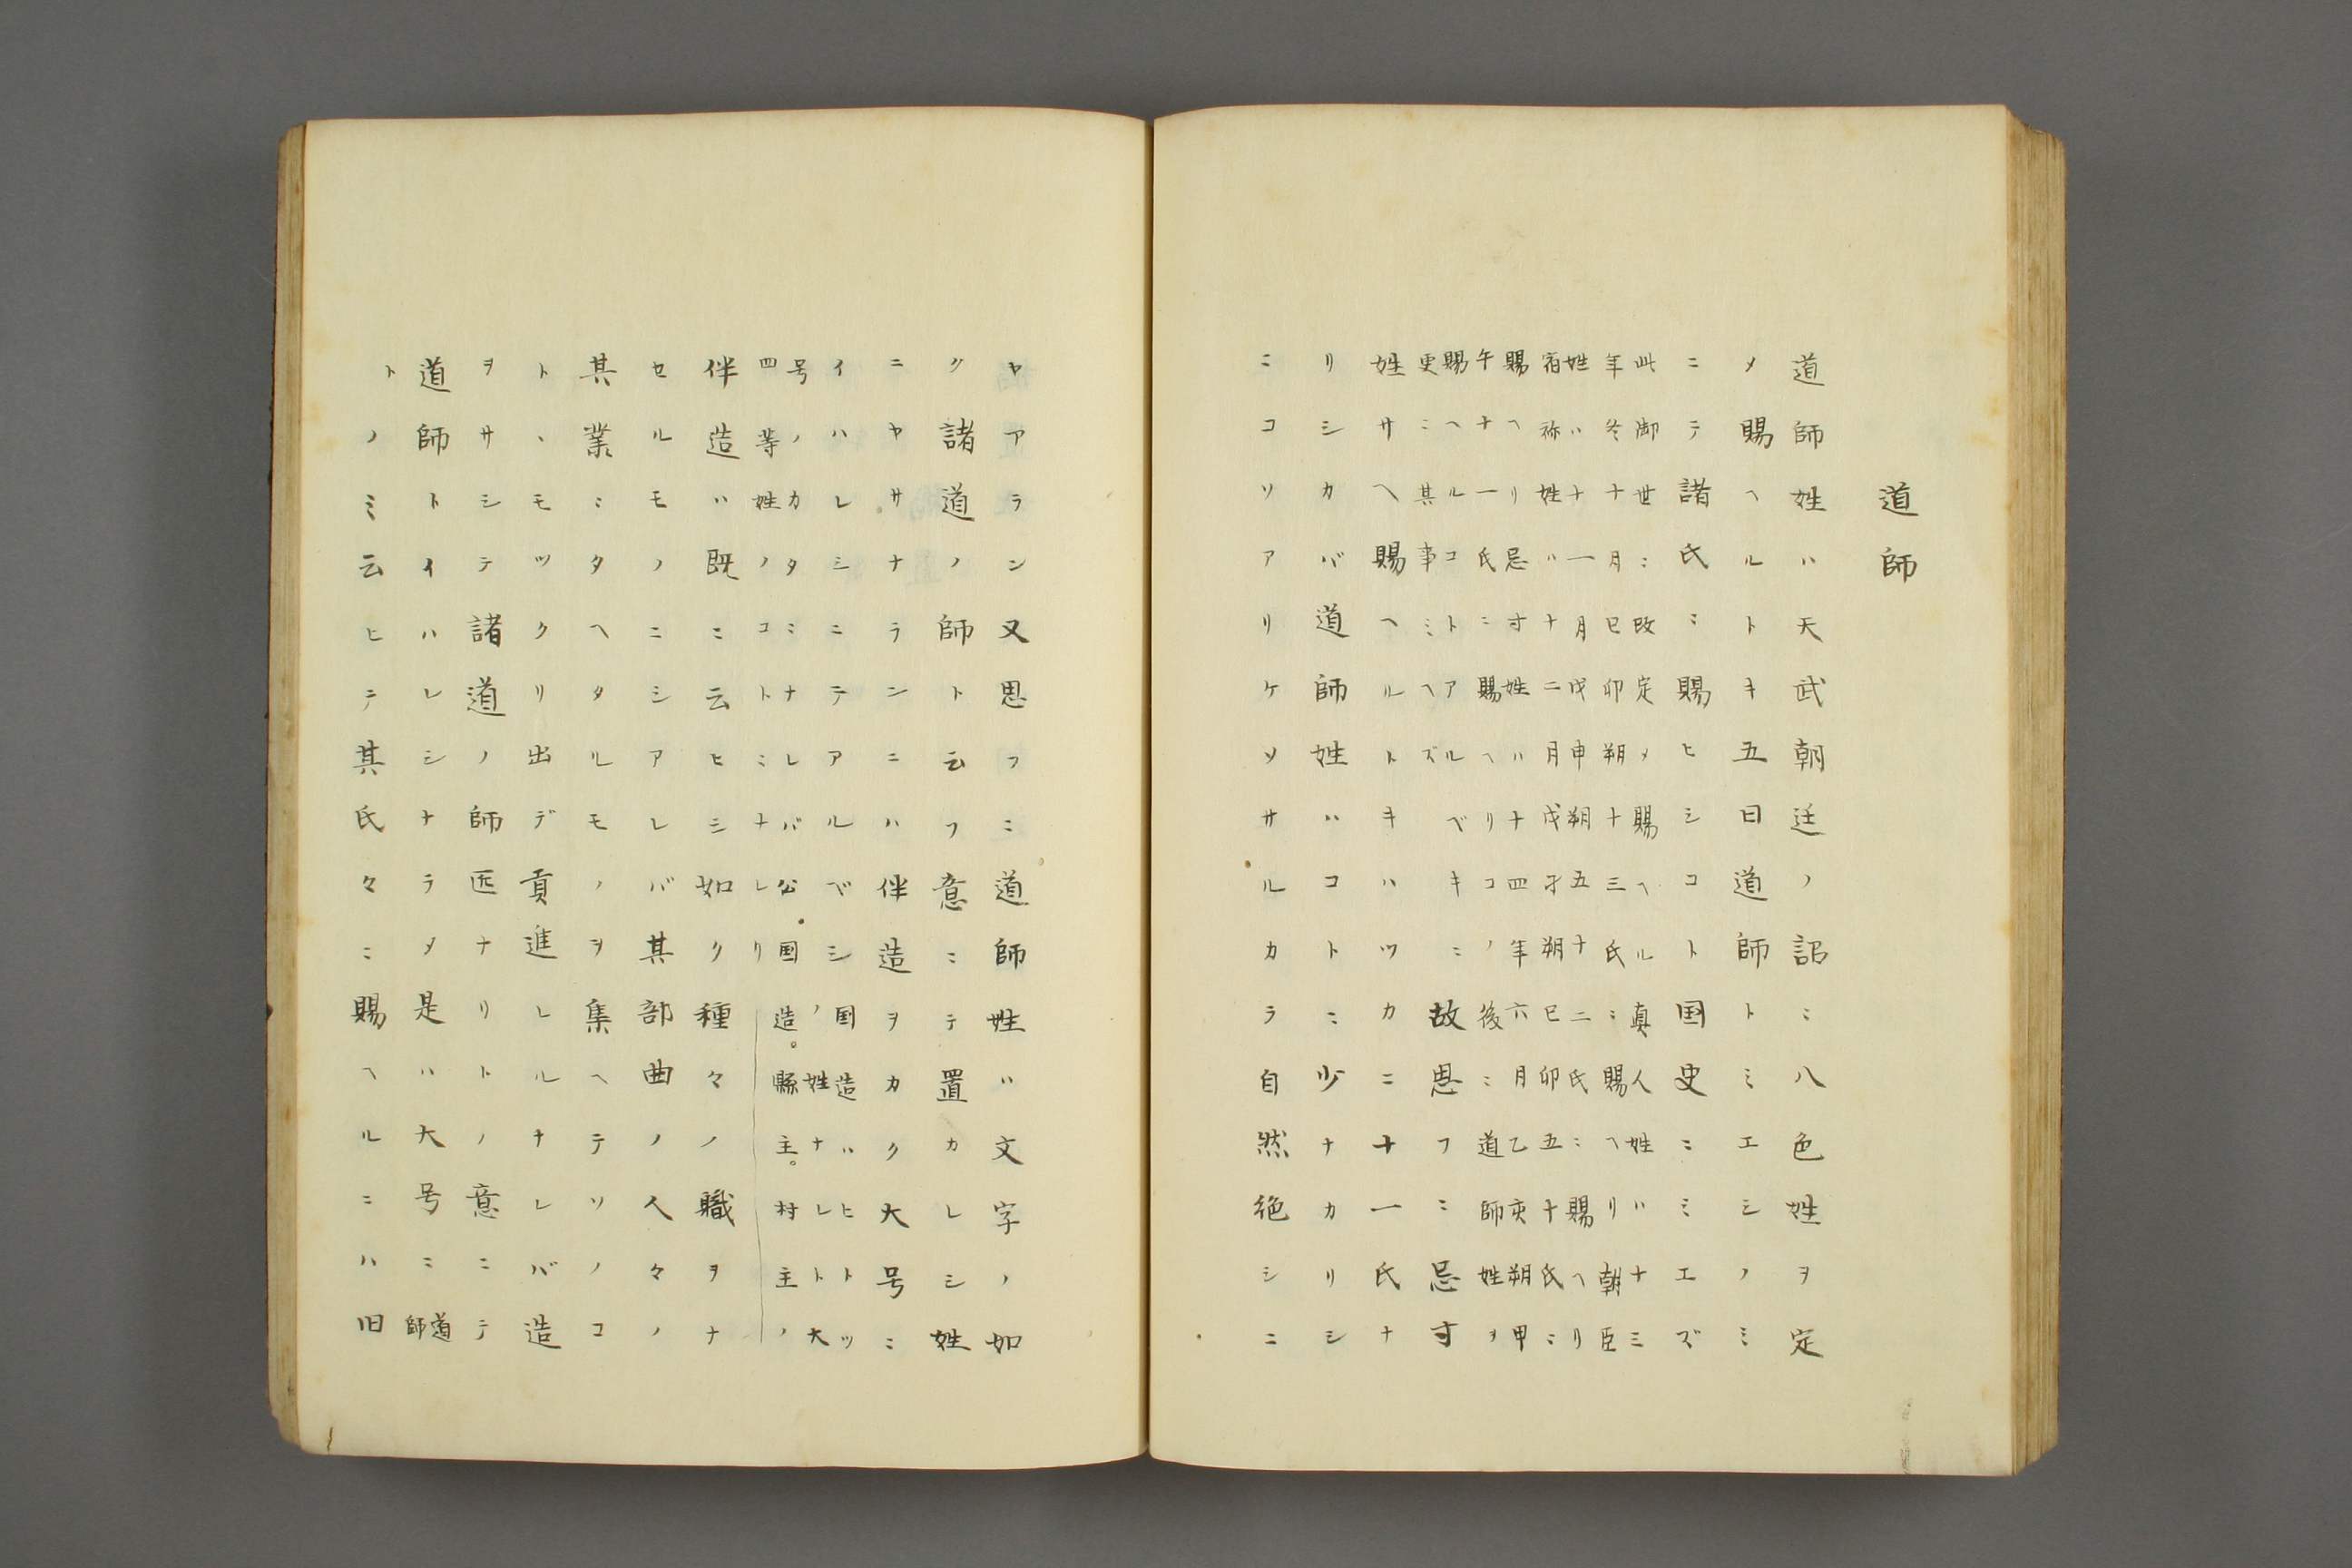 道師
道師姓ハ天武朝廷ノ詔ニ八色姓ヲ定
メ賜ヘルトキ五曰道師トミエシノミ
ニテ諸氏ニ賜ヒシコト国史ニミエズ
此御世ニ改定メ賜ヘル真人姓ハ十三
年冬十月己卯朔十三氏ニ賜ヘリ朝臣
姓ハ十一月戊申朔五十二氏ニ賜ヘリ
宿祢姓ハ十二月戊才朔己卯五十氏ニ
賜ヘリ忌寸姓ハ十四年六月乙亥朔甲
午十一氏ニ賜ヘリコノ後ニ道師姓ヲ
賜ヘルコトアルベキニ
更ニ其事ミヘズ
故思フニ忌寸
姓サヘ賜ヘルトキハツカニ十一氏ナ
リシカバ道師姓ハコトニ少ナカリシ
ニコソアリケメサルカラ自然絶シニ
ヤアラン又思フニ道師姓ハ文字ノ如
ク諸道ノ師ト云フ意ニテ置カレシ姓
ニヤサナランニハ伴造ヲカク大号ニ
イハレシニテアルベシ
国造ハヒトツ
ノ姓ナレトト大
号ノカタミナレバ公国造。縣主。村主ノ
四等姓ノコトミナレリ
伴造ハ既ニ云ヒシ如ク種々ノ職ヲナ
セルモノニシアレバ其部曲ノ人々ノ
其業ニタヘタルモノヲ集ヘテソノコ
トヽモツクリ出デ貢進レルナレバ造
ヲサシテ諸道ノ師匠ナリトノ意ニテ
道師トイハレシナラメ是ハ大号ニ道師
トノミ云ヒテ其氏々ニ賜ヘルニハ旧